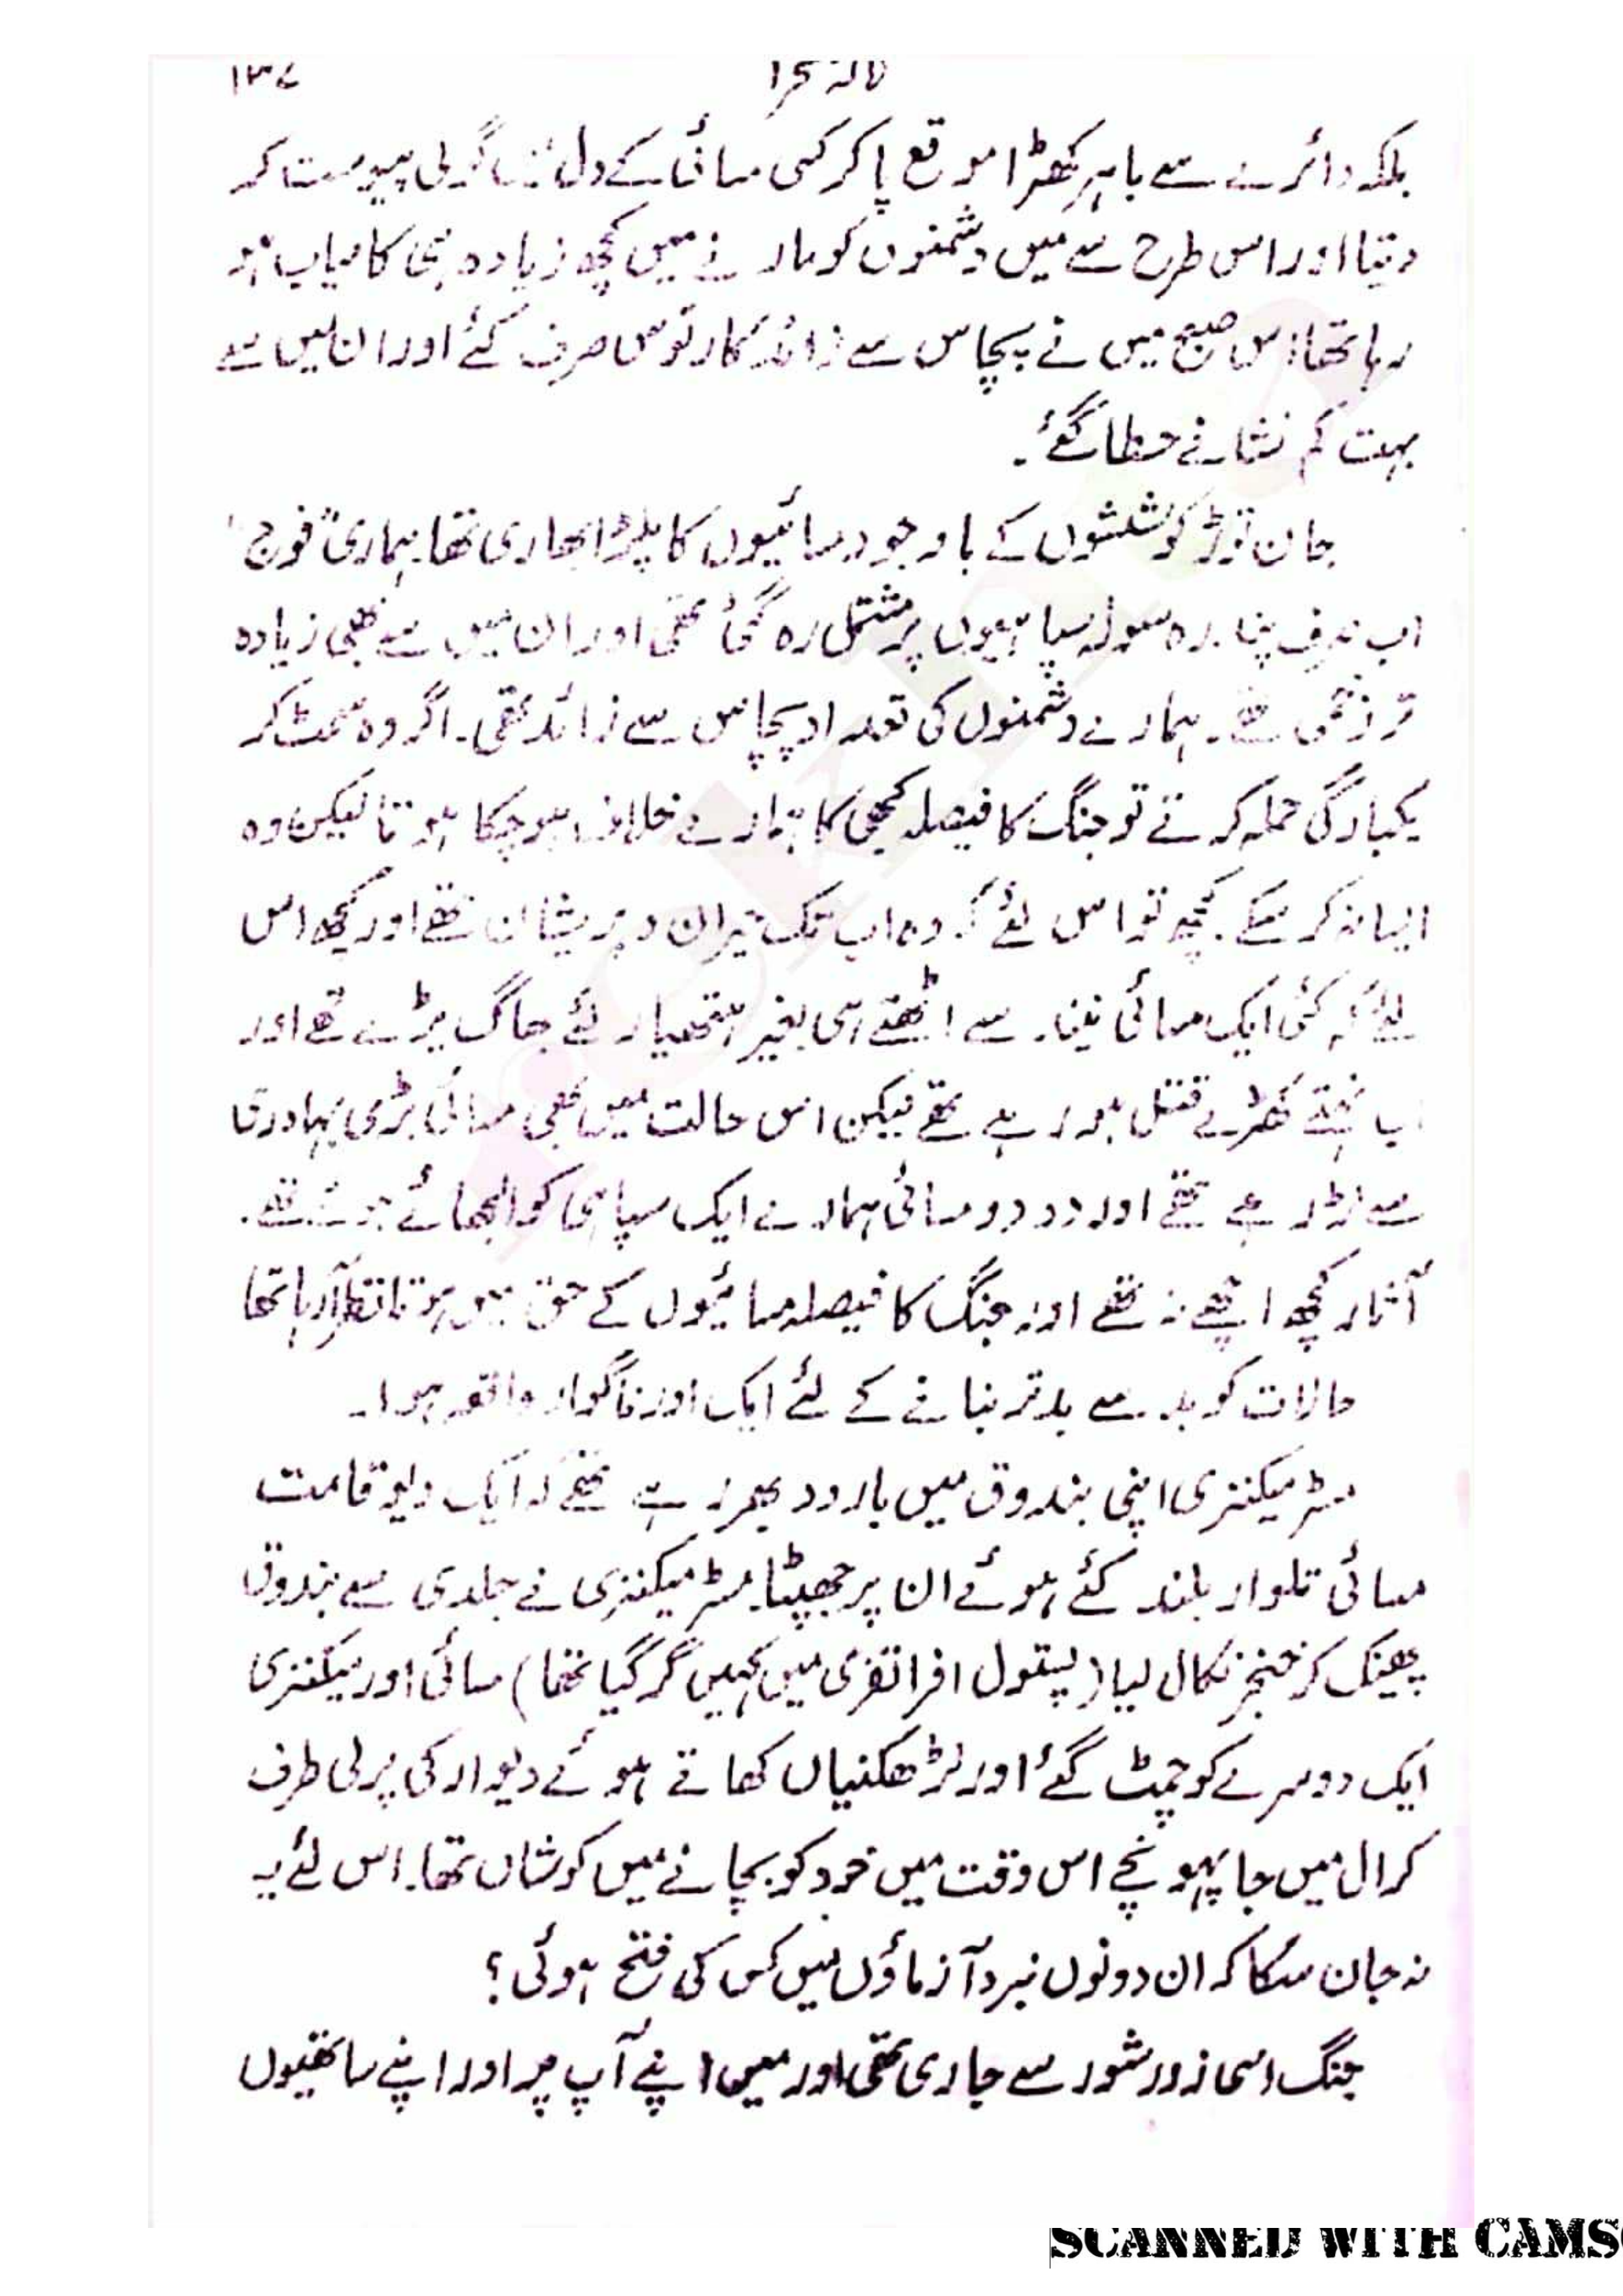 ۱۳۷
بلکہ دائرے سے باہر کھڑا موقع پا کر کسی مسائی کے دل میں گولی پیوست کر
دیتا اور اس طرح سے میں دشمنوں کو مارنے میں کچھ زیادہ ہی کامیاب ہو
رہا تھا۔ اس صبح میں نے پچاس سے زائد کارتوس صرف کئے اور ان میں سے
بہت کم نشانے خطا گئے۔
جان توڑ کوششوں کے باوجود مسائیوں کا پلڑا بھاری تھا۔ ہماری "فوج"
اب صرف پندرہ سولہ سپاہیوں پر مشتمل رہ گئی تھی اور ان میں سے بھی زیادہ
تر زخمی تھے۔ ہمارے دشمنوں کی تعداد پچاس سے زائد تھی۔ اگر وہ سمٹ کر
یکبارگی حملہ کرتے تو جنگ کا فیصلہ کبھی کا ہمارے خلاف ہو چکا ہوتا لیکن وہ
ایسا نہ کر سکے۔ کچھ تو اس لئے کہ وہ اب تک حیران و پریشان تھے اور کچھ اس
لئے کہ کئی ایک مسائی نیند سے اٹھتے ہی بغیر ہتھیار لئے بھاگ پڑے تھے اور
اب نہتے کھڑے قتل ہو رہے تھے لیکن اس حالت میں بھی مسائی بڑی بہادری
سے لڑ رہے تھے اور دو دو مسائی ہمارے ایک سپاہی کو الجھائے ہوئے تھے۔
آثار کچھ اچھے نہ تھے اور جنگ کا فیصلہ مسائیوں کے حق میں ہوتا نظر آ رہا تھا
حالات کو بد سے بدتر بنانے کے لئے ایک اور ناگوار واقعہ ہوا۔
مسٹر میکنزی اپنی بندوق میں بارود بھر رہے تھے کہ ایک دیو قامت
مسائی تلوار بلند کئے ہوئے ان پر جھپٹا۔ مسٹر میکنزی نے جلدی سے بندوق
پھینک کر خنجر نکال لیا (پستول افراتفری میں کہیں گر گیا تھا) مسائی اور میکنزی
ایک دوسرے کو چمٹ گئے اور لڑھکنیاں کھاتے ہوئے دیوار کی پرلی طرف
کرال میں جا پہونچے اس وقت میں خود کو بچانے میں کوشاں تھا۔ اس لئے یہ
نہ جان سکا کہ ان دونوں نبرد آزماؤں میں کس کی فتح ہوئی؟
جنگ اسی زور شور سے جاری تھی اور میں اپنے آپ پر اور اپنے ساتھیوں
SCANNED WITH CAMS